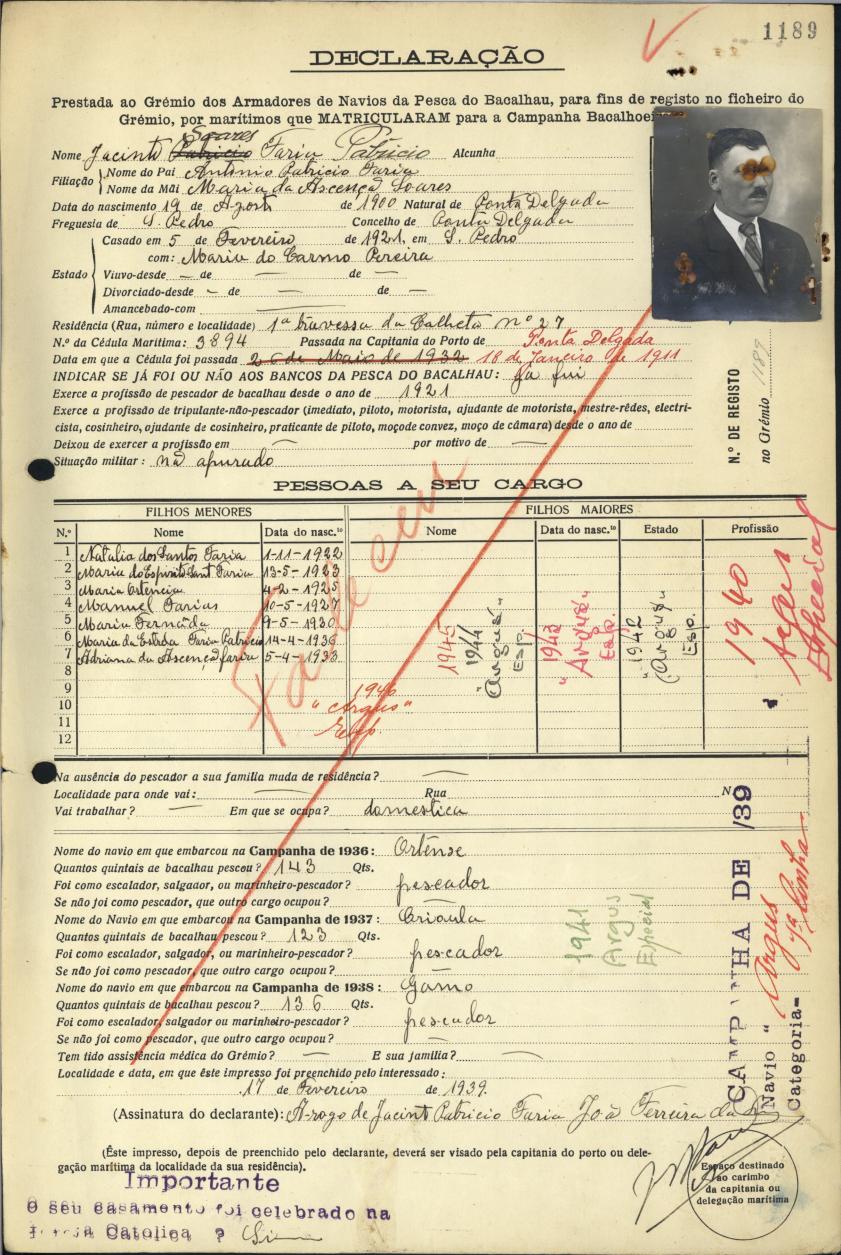 1189
DECLARAÇÃO
Prestada ao Grémio dos Armadores de Navios da Pesca do Bacalhau, para fins de registo no ficheiro do
Grémio, por marítimos que MATRICULARAM para a Campanha Bacalhoei
Soares
Nome Jacinto Patricio Faria Patricio Alcunha
Filiação Nome do Pai Antonio Patricio Faria
Nome da Mãi Maria da Ascença Soares
Data do nascimento 19 de Agosto de 1900 Natural de Ponta Delgada
Freguesia de S. Pedro Concelho de Ponta Delgada
Casado em 5 de Fevereiro de 1921. em S. Pedro
com: Maria do Carmo Pereira
Estado Viuvo-desde — de — de —
Divorciado-desde — de — de —
Amancebado-com —
Residência (Rua, número e localidade) 1ª travessa da Calheta nº 27
N.º da Cédula Marítima: 3894 Passada na Capitania do Porto de Ponta Delgada
Data em que a Cédula foi passada 26 de Maio de 1932 18 de Janeiro de 1911
INDICAR SE JÁ FOI OU NÃO AOS BANCOS DA PESCA DO BACALHAU: Ja fui
Exerce a profissão de pescador de bacalhau desde o ano de 1921
Exerce a profissão de tripulante-não-pescador (imediato, piloto, motorista, ajudante de motorista, mestre-rêdes, electri-
cista, cosinheiro, ajudante de cosinheiro, praticante de piloto, moço de convez, moço de câmara) desde o ano de
Deixou de exercer a profissão em — por motivo de —
Situação militar: nã apurado
N.º DE REGISTO
no Grémio 1189
PESSOAS A SEU CARGO
FILHOS MENORES FILHOS MAIORES
N.º Nome Data do nasc.to Nome Data do nasc.to Estado Profissão
1 Natalia dos Santos Faria 1-11-1922
2 Maria do Espirito Sant Faria 13-5-1923
3 Maria Ortencia 4-2-1925
4 Manuel Farias 10-5-1927
5 Maria Fernada 9-5-1930
6 Maria da Estrêda Faria Patricio 14-4-1936
7 Adriana da Ascença faria 5-4-1933
8
9
10
11
12
Faleceu
1946
"Argus"
Esp.
1945
1944
"Argus"
Esp.
1943
"Argus"
Esp.
1942
"Argus"
Esp.
1940
Argus
Especial
Na ausência do pescador a sua familia muda de residência? —
Localidade para onde vai: — Rua N.
Vai trabalhar? — Em que se ocupa? domestica
Nome do navio em que embarcou na Campanha de 1936: Ortense
Quantos quintais de bacalhau pescou? 143 Qts.
Foi como escalador, salgador, ou marinheiro-pescador? pescador
Se não foi como pescador, que outro cargo ocupou? —
Nome do Navio em que embarcou na Campanha de 1937: Crioula
Quantos quintais de bacalhau pescou? 123 Qts.
Foi como escalador, salgador, ou marinheiro-pescador? pescador
Se não foi como pescador, que outro cargo ocupou?
Nome do navio em que embarcou na Campanha de 1938: Gamo
Quantos quintais de bacalhau pescou? 136 Qts.
Foi como escalador, salgador ou marinheiro-pescador? pescador
Se não foi como pescador, que outro cargo ocupou? —
Tem tido assistência médica do Grémio? — E sua família? —
1941
Argus
Especial
CAMPANHA DE /39
Navio "Argus
Categoria- 1ª Linha
Localidade e data, em que êste impresso foi preenchido pelo interessado:
17 de Fevereiro de 1939.
(Assinatura do declarante): A-rogo de Jacint Patricio Faria Joã Ferreira da
(Êste impresso, depois de preenchido pelo declarante, deverá ser visado pela capitania do porto ou dele-
gação marítima da localidade da sua residência).
Espaço destinado
ao carimbo
da capitania ou
delegação marítima
Importante
O seu casamento foi celebrado na
Igreja Catolica ? Sim